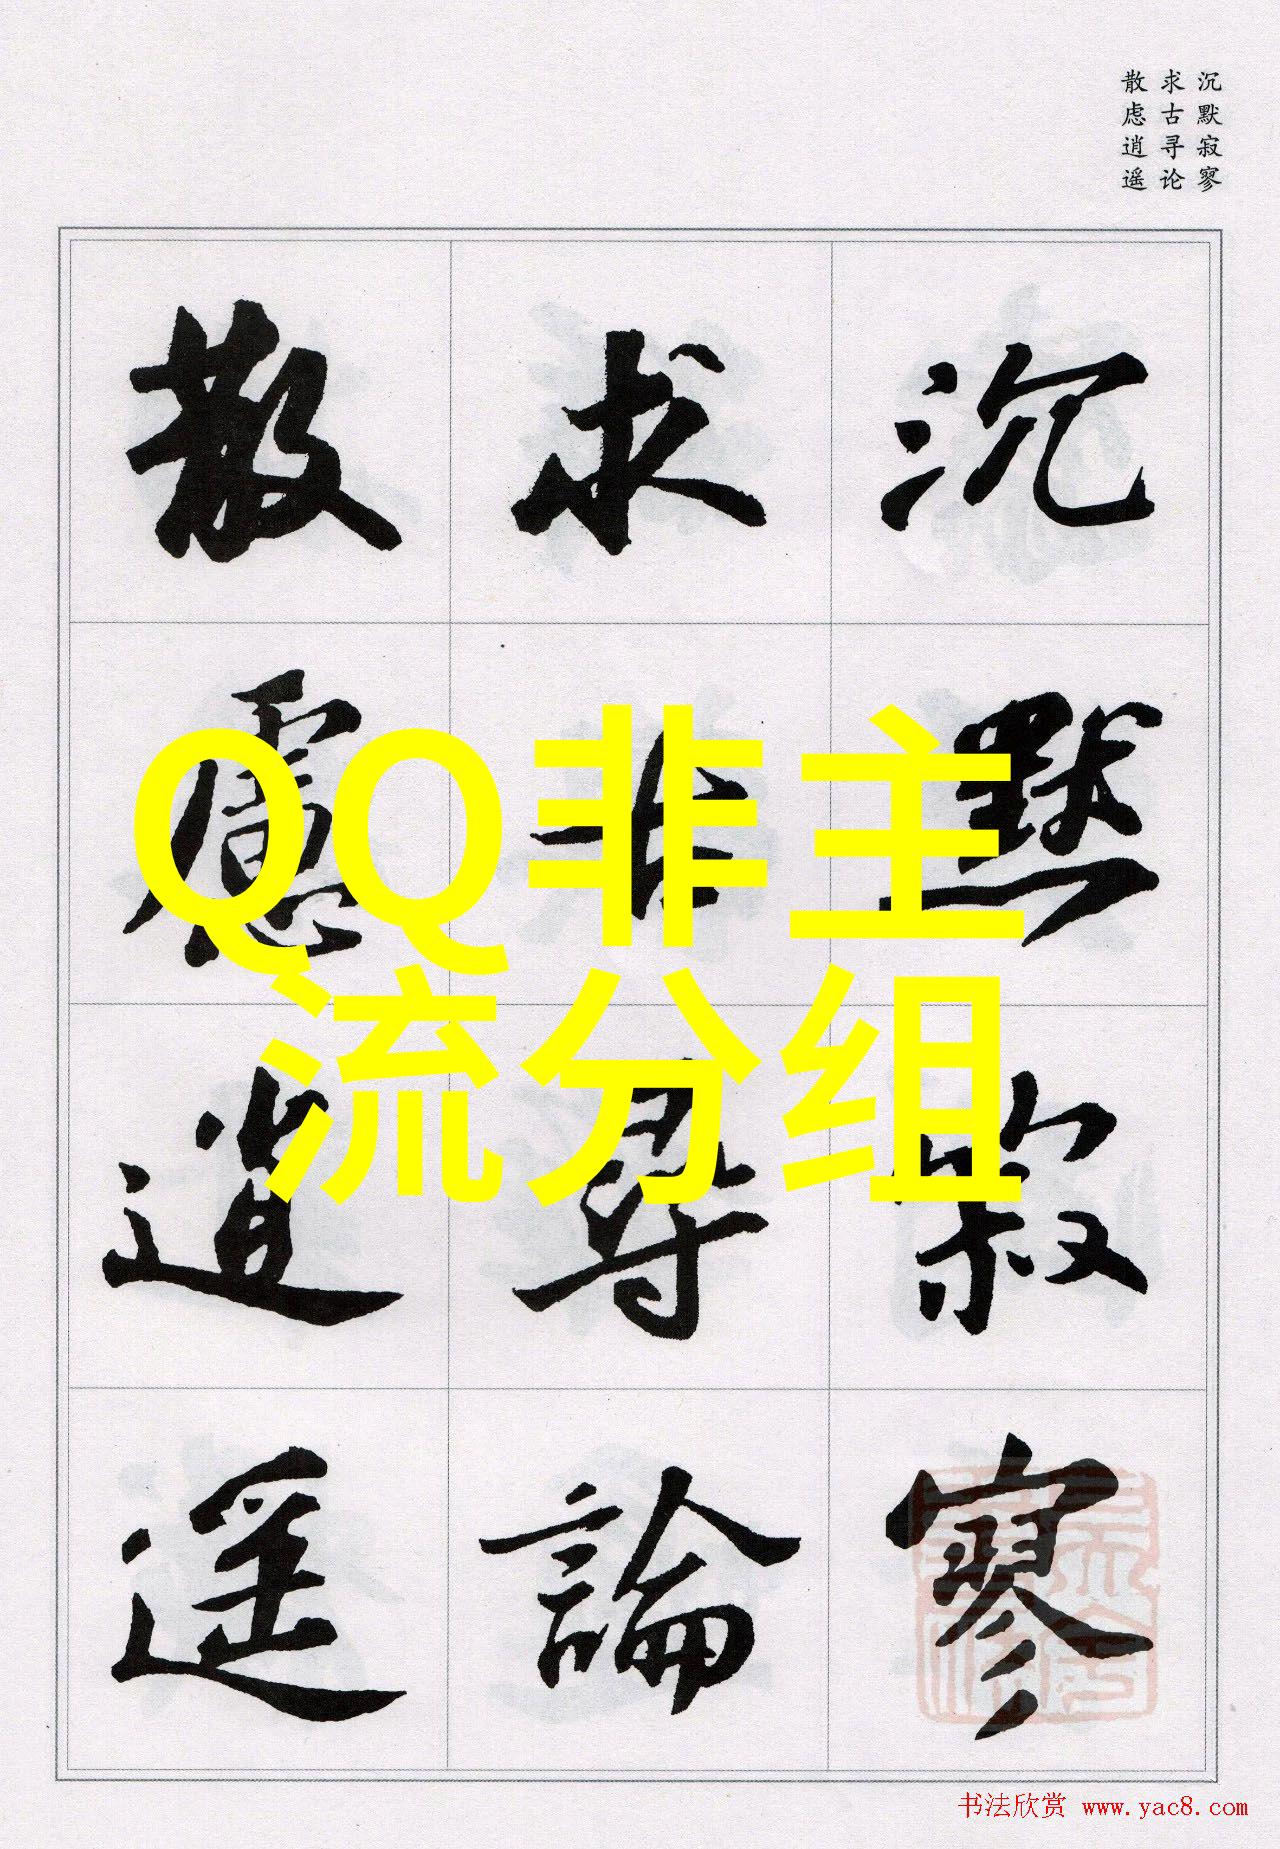 沉默寂寥
求古寻论
散虑逍遥
沉默寂寥
求古尋論
散慮逍遥
QQ非主
流分组
书法欣赏 www.yac8.com